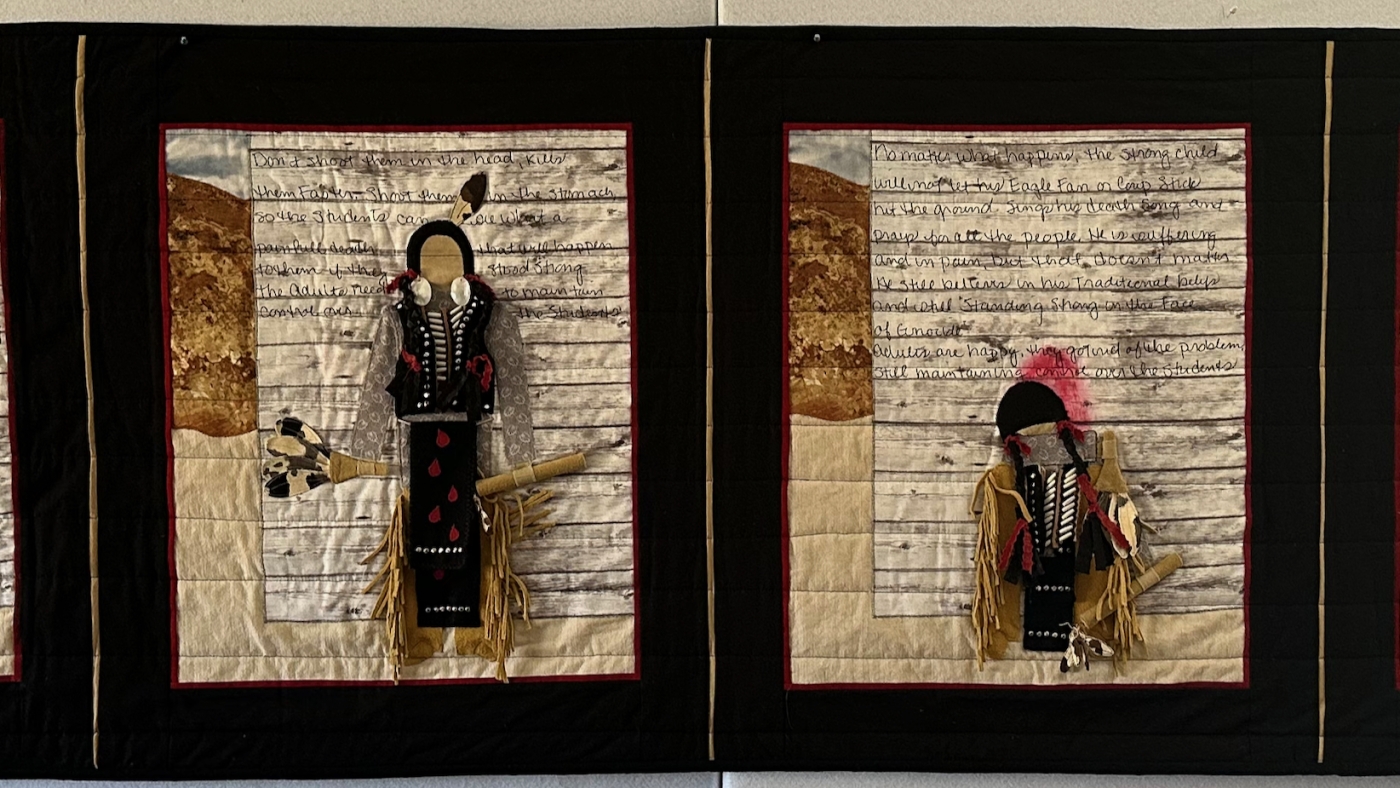 Don't shoot them in the head, kills
them Faster. Shoot them in the stomach
so the Students can see what a
painfull death that will happen
to them if they stood strong
the Adults need to maintain
control over the Students
No matter what happens, the strong child
will not let his Eagle Fan or Coup Stick
hit the ground. Sings his death Song and
prays for all the people. He is suffering
and in pain, but that doesn't matter
He still believes in his Traditional
and still "Standing Strong in the Face
of Genocide"
Adults are happy, they got rid of the problem,
still maintaining control over the Students